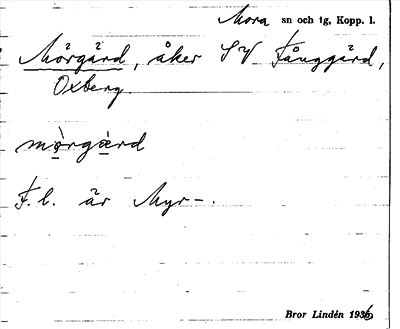 Mora sn och tg, Kopp. l.
Mörgård, åker SV Fånggård,
Oxberg.
mò̤rgà̤rd
F. l. är Myr-.
Bror Lindén 1936